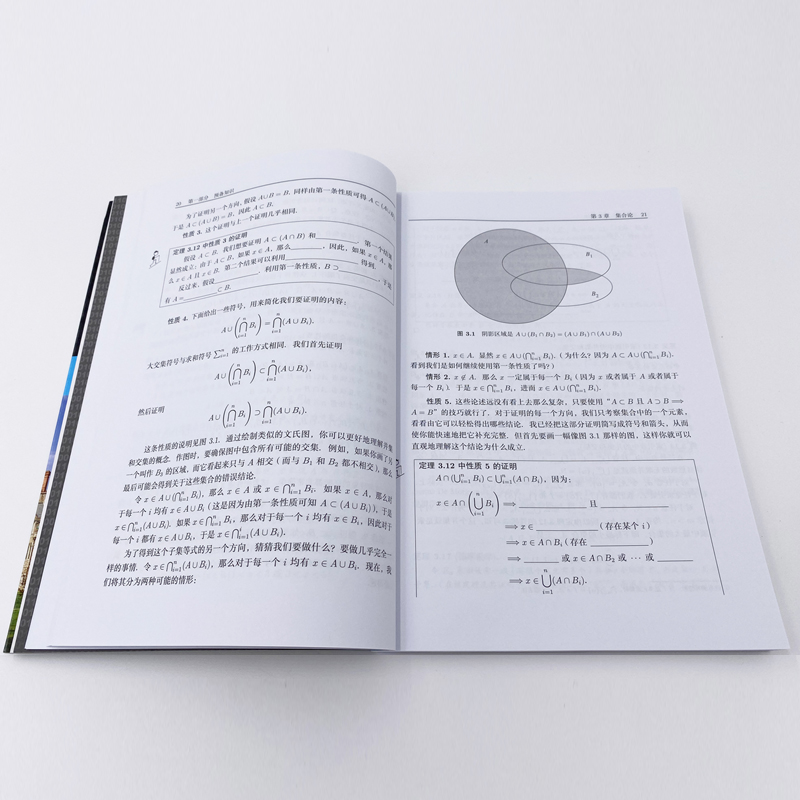 20 第一部分 预备知识
为了证明另一个方向, 假设 A∪B = B. 同样由第一条性质可得 A ⊂ (A∪B)
于是 A ⊂ (A∪B) = B, 因此 A ⊂ B.
性质 3. 这个证明与上一个证明几乎相同.
定理 3.12 中性质 3 的证明
假设 A ⊂ B. 我们想要证明 A ⊂ (A∩B) 和________. 第一个结果
显然成立: 由于 A ⊂ B, 如果 x∈A, 那么________, 因此, 如果 x∈A, 那
么 x∈A 且 x∈B. 第二个结果可以利用________得到.
反过来, 假设________. 利用第一条性质, B ⊃________, 于是
有 A =________⊂ B.
性质 4. 下面给出一些符号, 用来简化我们要证明的内容:
A∪(⋂ⁿᵢ₌₁ Bᵢ) = ⋂ⁿᵢ₌₁ (A∪Bᵢ).
大交集符号与求和符号 ∑ⁿᵢ₌₁ 的工作方式相同. 我们首先证明
A∪(⋂ⁿᵢ₌₁ Bᵢ) ⊂ ⋂ⁿᵢ₌₁ (A∪Bᵢ),
然后证明
A∪(⋂ⁿᵢ₌₁ Bᵢ) ⊃ ⋂ⁿᵢ₌₁ (A∪Bᵢ).
这条性质的说明见图 3.1. 通过绘制类似的文氏图, 你可以更好地理解并集
和交集的概念. 作图时, 要确保图中包含所有可能的交集. 例如, 如果你画了另
一个叫作 B₃ 的区域, 而它看起来只与 A 相交 (而与 B₁ 和 B₂ 都不相交), 那么
最后可能会得到关于这些集合的错误结论.
令 x∈A∪(⋂ⁿᵢ₌₁ Bᵢ), 那么 x∈A 或 x∈⋂ⁿᵢ₌₁ Bᵢ. 如果 x∈A, 那么对
于每一个 i 均有 x∈A∪Bᵢ (这是因为由第一条性质可知 A ⊂ (A∪Bᵢ)), 于是
x∈⋂ⁿᵢ₌₁(A∪Bᵢ). 如果 x∈⋂ⁿᵢ₌₁ Bᵢ, 那么对于每一个 i 均有 x∈Bᵢ, 因此对于
每一个 i 都有 x∈A∪Bᵢ, 于是 x∈⋂ⁿᵢ₌₁(A∪Bᵢ).
为了得到这个子集等式的另一个方向, 猜猜我们要做什么? 要做几乎完全一
样的事情. 令 x∈⋂ⁿᵢ₌₁(A∪Bᵢ), 那么对于每一个 i 均有 x∈A∪Bᵢ. 现在, 我
们将其分为两种可能的情形:
第 3 章 集合论 21
A
B₁
B₂
图 3.1 阴影区域是 A∪(B₁∩B₂) = (A∪B₁)∩(A∪B₂)
情形 1. x∈A. 显然 x∈A∪(⋂ⁿᵢ₌₁ Bᵢ). (为什么? 因为 A ⊂ A∪(⋂ⁿᵢ₌₁ Bᵢ).
看到我们是如何继续使用第一条性质了吗?)
情形 2. x∉A. 那么 x 一定属于每一个 Bᵢ (因为 x 或者属于 A 或者属于
每一个 Bᵢ). 于是 x∈⋂ⁿᵢ₌₁ Bᵢ, 进而 x∈A∪(⋂ⁿᵢ₌₁ Bᵢ).
性质 5. 这些论述远没有看上去那么复杂, 只要使用 “A ⊂ B 且 A ⊃ B ⟹
A = B” 的技巧就行了. 对于证明的每一个方向, 我们只考察集合中的一个元素,
看看由它可以轻松得出哪些结论. 我已经把这部分证明简写成符号和箭头, 从而
使你能快速地把它补充完整. 但首先要画一幅像图 3.1 那样的图, 这样你就可以
直观地理解这个结论为什么成立.
定理 3.12 中性质 5 的证明
A∩(⋃ⁿᵢ₌₁ Bᵢ) ⊂ ⋃ⁿᵢ₌₁(A∩Bᵢ), 因为:
x∈A∩(⋃ⁿᵢ₌₁ Bᵢ) ⟹ ________ 且 ________
⟹ x∈ ________ (存在某个 i)
⟹ x∈A∩Bᵢ (存在 ________)
⟹ ________ 或 x∈A∩B₂ 或 ⋯ 或 ________
⟹ x∈⋃ⁿᵢ₌₁(A∩Bᵢ).